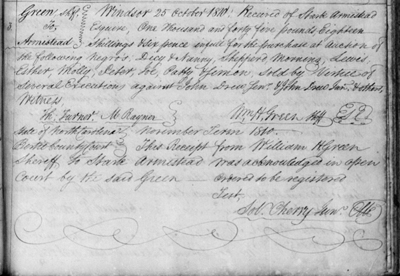 Green Shff
To
Armistead
Windsor 25 October 1810. Received of Stark Armistead
Esquire, One Thousand and forty four pounds Eighteen
Shillings & Ten pence in full for the purchase at Auction of
the following Negros, Lucy & Nancy, Shepperd, Lewis
Esther, Molly, Peter, Joe, Patty & Simon, Sold by Virtue of
Several Executions against John Drew Senr. & John Drew Junr.
Witness
Th. Turner M Rayner Wm. H. Green Shff
State of North Carolina November Term 1810.
Bertie County Court This Receipt from William H Green
Sheriff, To Stark Armistead was acknowledged in open
Court by the said Green ordered to be registered
Test,
Sol. Cherry Junr.